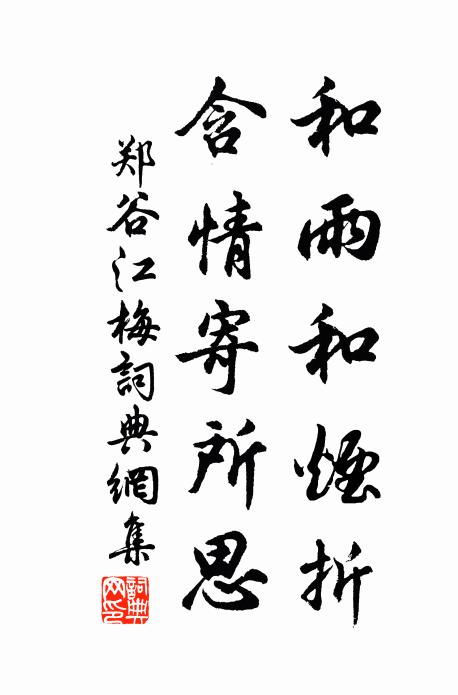 和雨和煙折
含情寄所思
郑谷江梅詞典網集
詞典网印